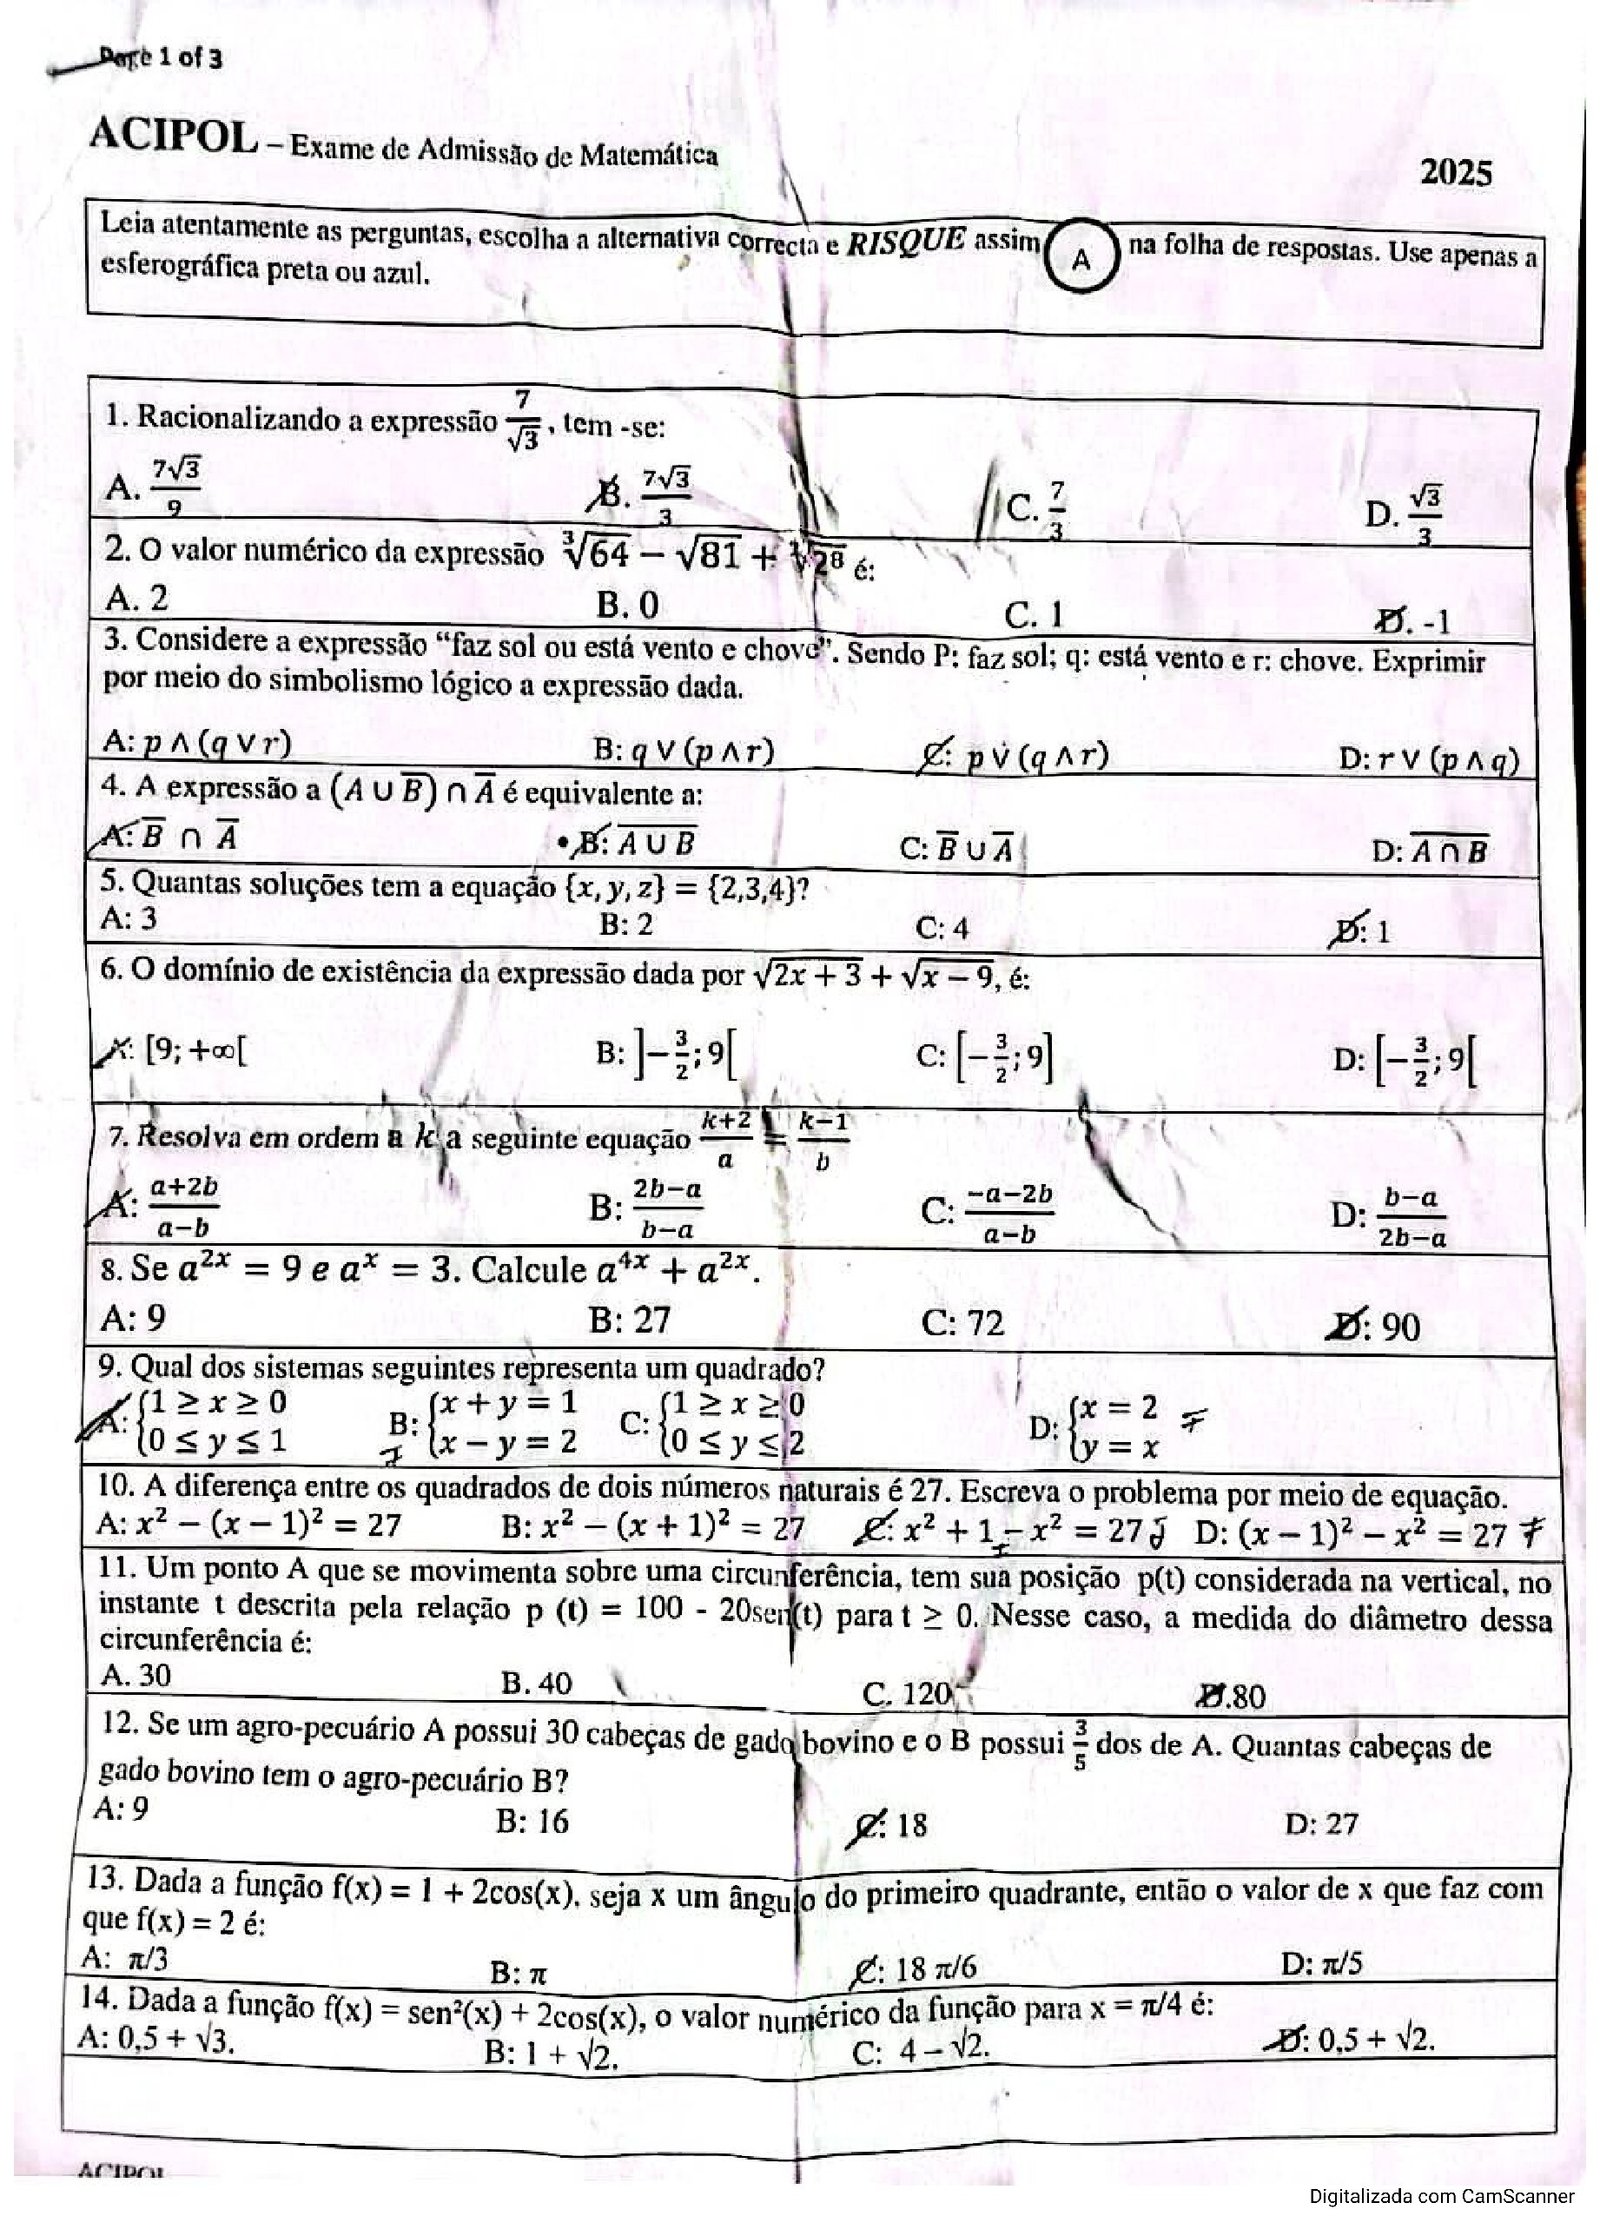 Page 1 of 3
ACIPOL – Exame de Admissão de Matemática
2025
Leia atentamente as perguntas, escolha a alternativa correcta e RISQUE assim A na folha de respostas. Use apenas a
esferográfica preta ou azul.
1. Racionalizando a expressão 7/√3, tem -se:
A. 7√3/9 B. 7√3/3 C. 7/3 D. √3/3
2. O valor numérico da expressão ∛64 − √81 + √2⁸ é:
A. 2 B. 0 C. 1 D. -1
3. Considere a expressão “faz sol ou está vento e chove”. Sendo P: faz sol; q: está vento e r: chove. Exprimir
por meio do simbolismo lógico a expressão dada.
A: p ∧ (q ∨ r) B: q ∨ (p ∧ r) C: p ∨ (q ∧ r) D: r ∨ (p ∧ q)
4. A expressão a (A ∪ B̅) ∩ A̅ é equivalente a:
A: B̅ ∩ A̅ B: \overline{A ∪ B} C: B̅ ∪ A̅ D: \overline{A ∩ B}
5. Quantas soluções tem a equação {x, y, z} = {2,3,4}?
A: 3 B: 2 C: 4 D: 1
6. O domínio de existência da expressão dada por √(2x + 3) + √(x − 9), é:
A: [9; +∞[ B: ]−3/2; 9[ C: [−3/2; 9] D: [−3/2; 9[
7. Resolva em ordem a k a seguinte equação (k+2)/a = (k−1)/b
A: (a+2b)/(a−b) B: (2b−a)/(b−a) C: (−a−2b)/(a−b) D: (b−a)/(2b−a)
8. Se a²ˣ = 9 e aˣ = 3. Calcule a⁴ˣ + a²ˣ.
A: 9 B: 27 C: 72 D: 90
9. Qual dos sistemas seguintes representa um quadrado?
A: {1 ≥ x ≥ 0 B: {x + y = 1 C: {1 ≥ x ≥ 0 D: {x = 2 F
{0 ≤ y ≤ 1 F {x − y = 2 {0 ≤ y ≤ 2 {y = x
10. A diferença entre os quadrados de dois números naturais é 27. Escreva o problema por meio de equação.
A: x² − (x − 1)² = 27 B: x² − (x + 1)² = 27 C: x² + 1 − x² = 27 D: (x − 1)² − x² = 27 F
11. Um ponto A que se movimenta sobre uma circunferência, tem sua posição p(t) considerada na vertical, no
instante t descrita pela relação p (t) = 100 - 20sen(t) para t ≥ 0. Nesse caso, a medida do diâmetro dessa
circunferência é:
A. 30 B. 40 C. 120 D.80
12. Se um agro-pecuário A possui 30 cabeças de gado bovino e o B possui 3/5 dos de A. Quantas cabeças de
gado bovino tem o agro-pecuário B?
A: 9 B: 16 C: 18 D: 27
13. Dada a função f(x) = 1 + 2cos(x), seja x um ângulo do primeiro quadrante, então o valor de x que faz com
que f(x) = 2 é:
A: π/3 B: π C: 18 π/6 D: π/5
14. Dada a função f(x) = sen²(x) + 2cos(x), o valor numérico da função para x = π/4 é:
A: 0,5 + √3. B: 1 + √2. C: 4 – √2. D: 0,5 + √2.
ACIPOL
Digitalizada com CamScanner